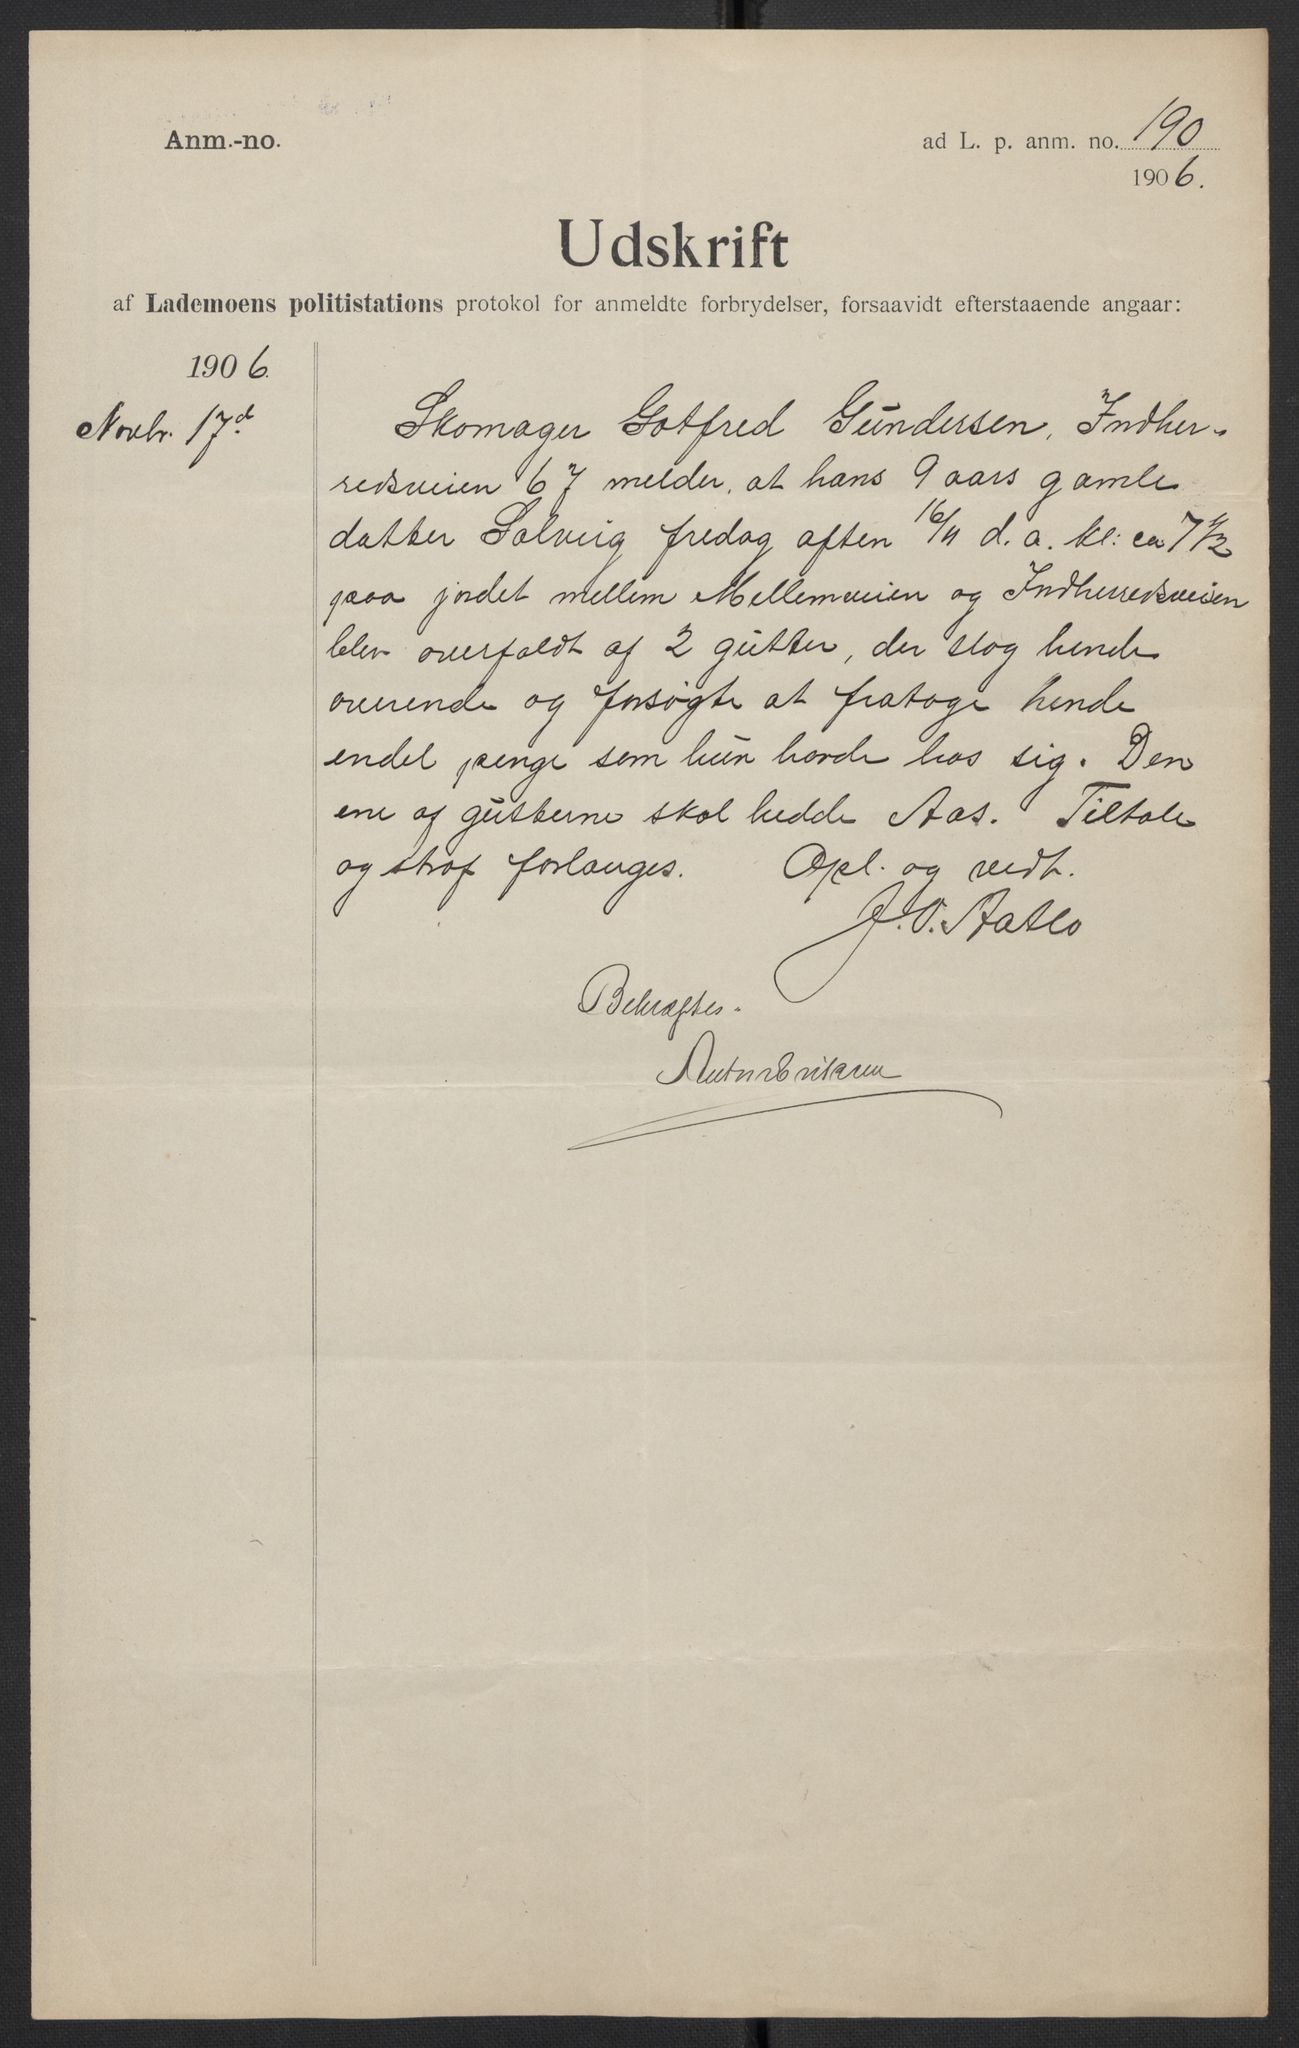 Anm.-no.
ad L. p. anm. no. 190
1906.
Udskrift
af Lademoens politistations protokol for anmeldte forbrydelser, forsaavidt efterstaaende angaar:
1906.
Novbr. 17d
Skomager Gotfred Gundersen, Indher-
redsveien 67 melder, at hans 9 aars gamle
datter Solveig fredag aften 16/11 d. a. kl: ca 7 1/2
paa jordet mellem Mellemveien og Indherredsveien
blev overfaldt af 2 gutter, der slog hende
overende og forsøgte at fratage hende
endel penge som hun havde hos sig. Den
ene af gutterne skal hedde Aas. Tiltale
og straf forlanges. Opl. og vedt.
J. O. Aatlo
Bekræftes.
Anton Eriksen